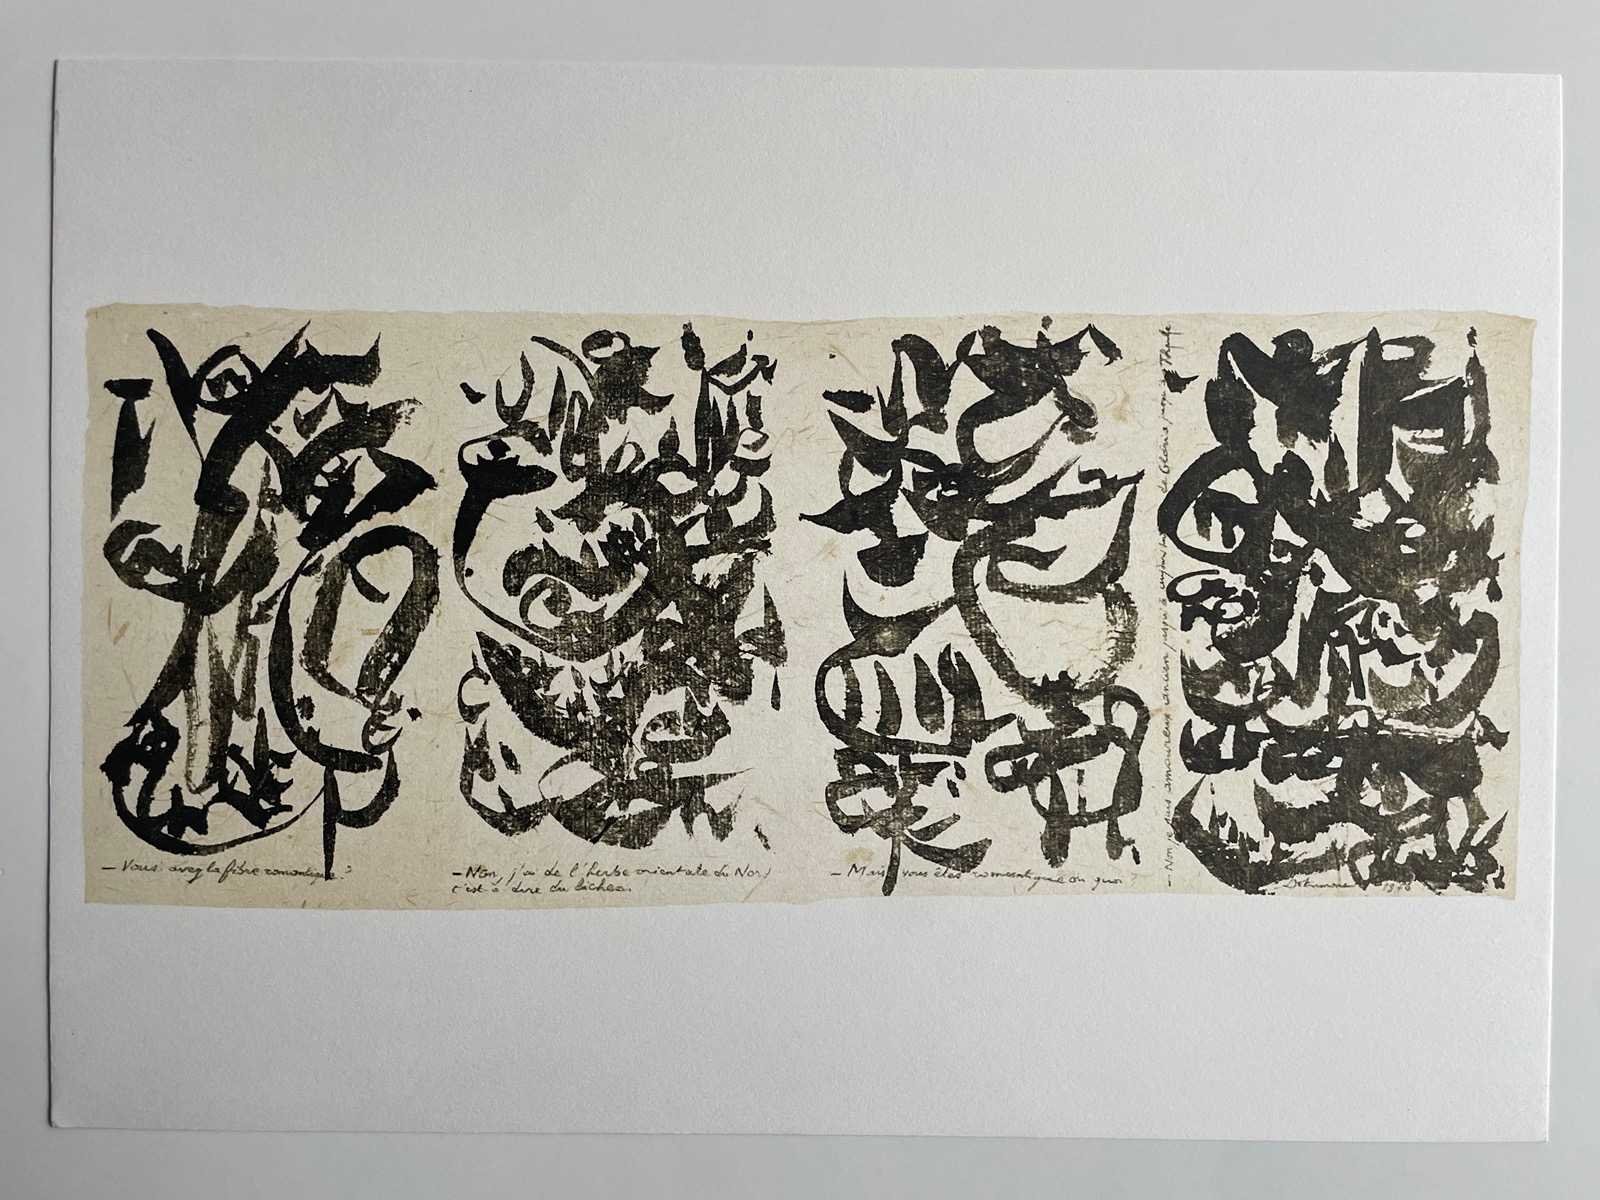 — Vous avez la fibre romantique ?
— Non, j'ai de l'herbe orientale du Nord
c'est à dire du lichen.
— Mais vous êtes romantique ou quoi ?
— Non je suis amoureux ancien jusqu'à aujourd'hui de
Dotremont 1976